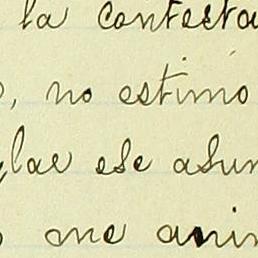 la contesta
, no estimo
lar ese asun
me anim